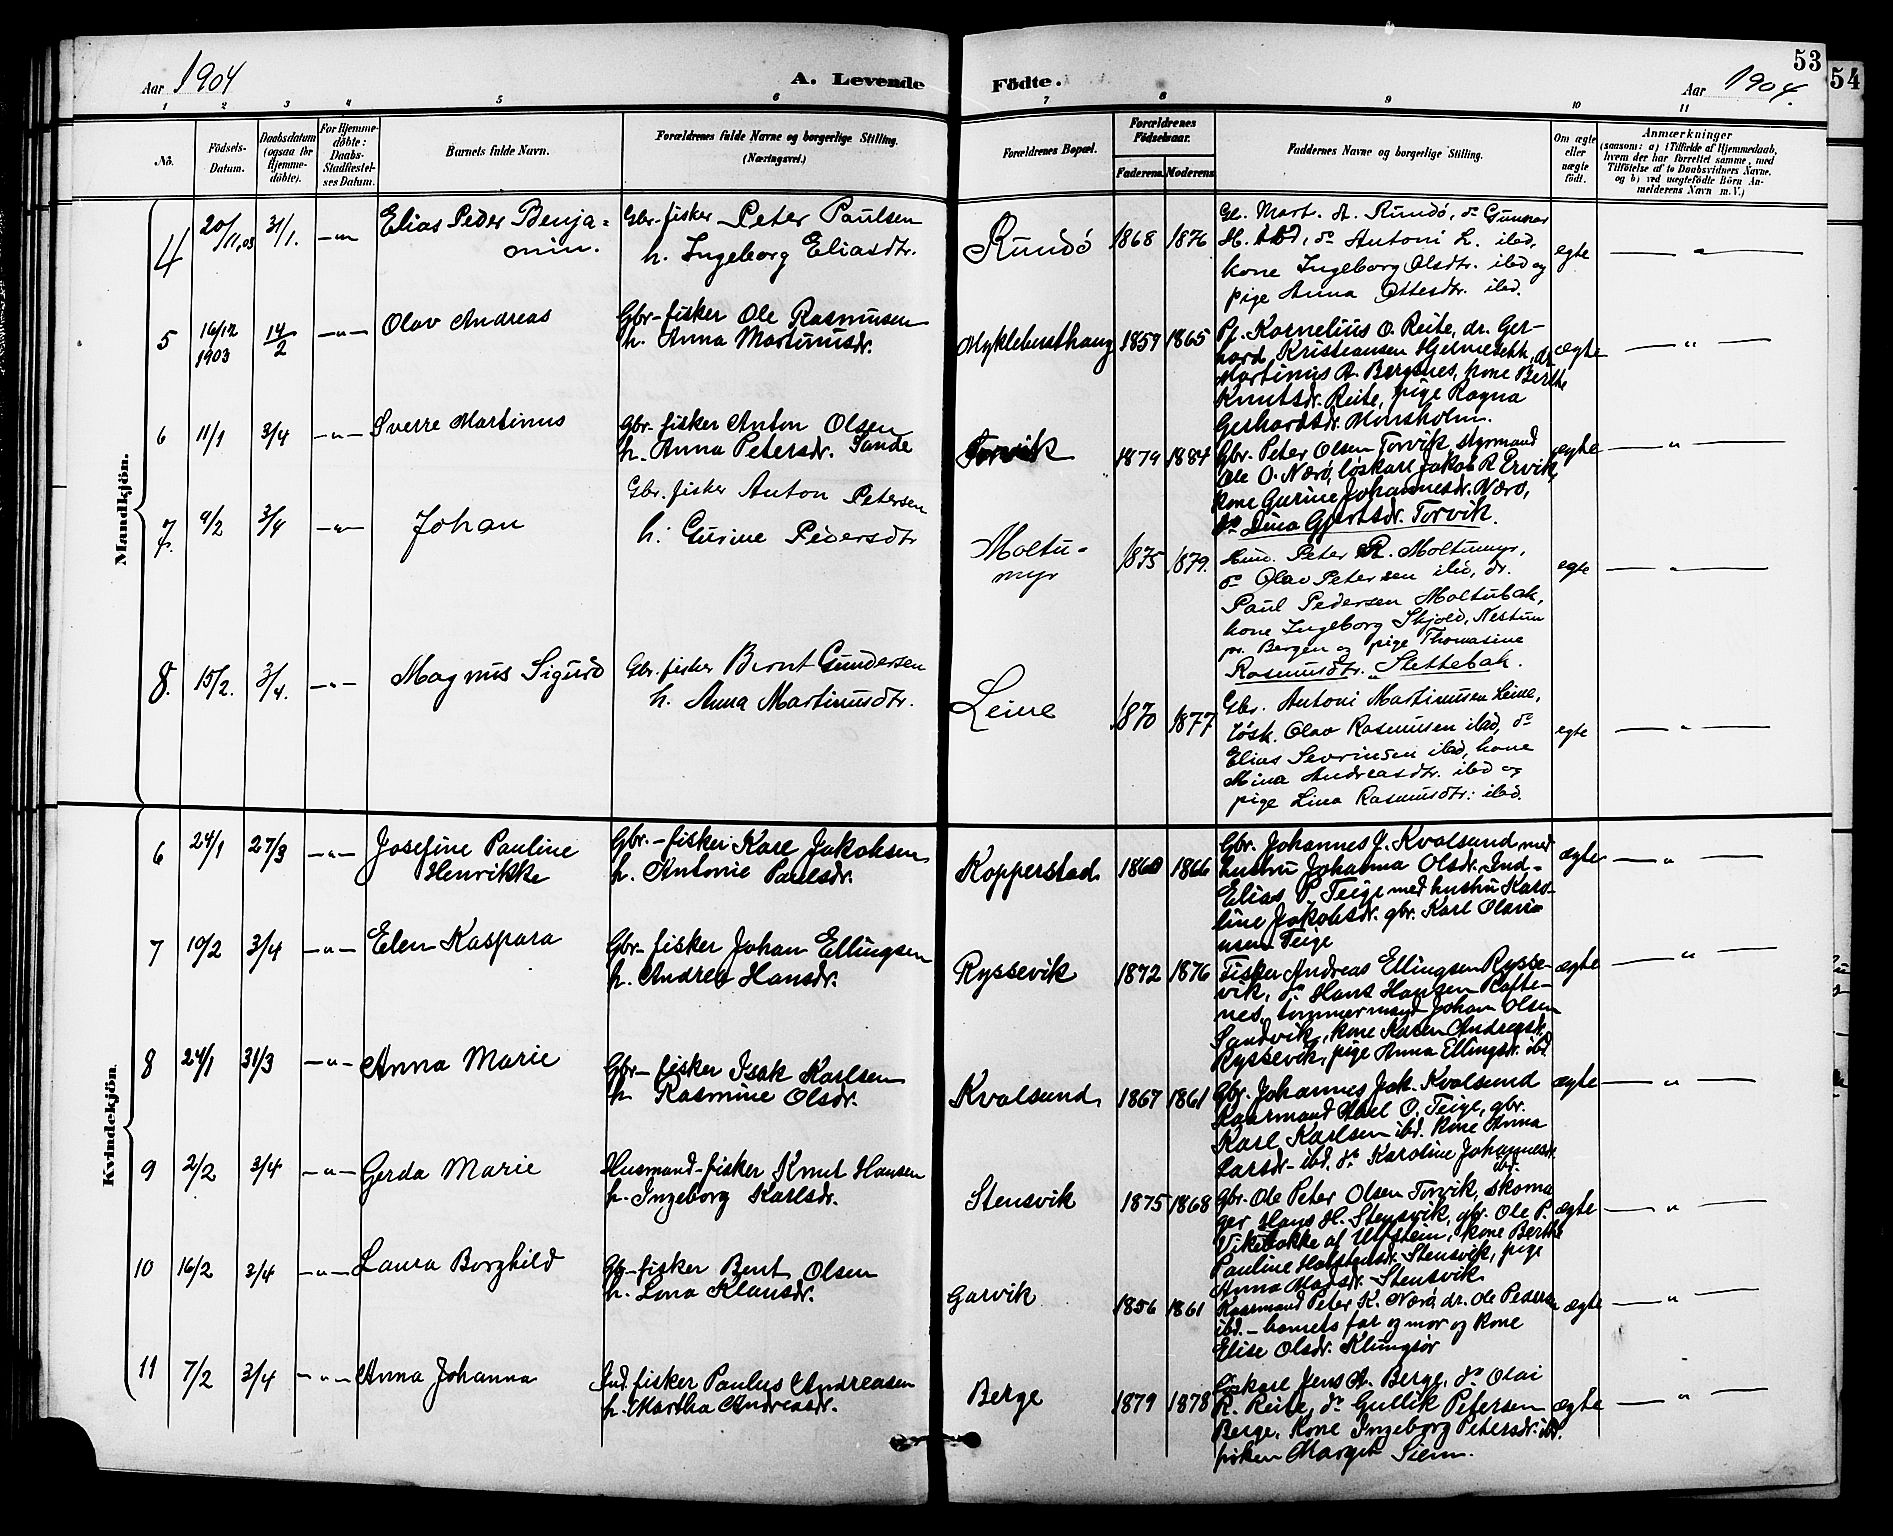 53
54
Aar 1904
A. Levende
Födte.
Aar 1904.
1 2 3 4 5 6 7 8 9 10 11
No.
Födsels-
Datum.
Daabsdatum
(ogsaa for
Hjemme-
döbte).
For Hjemme-
döbte:
Daabs-
Stadfæstel-
ses Datum.
Barnets fulde Navn.
Forældrenes fulde Navne og borgerlige Stilling.
(Næringsvei.)
Forældrenes Bopæl.
Forældrenes
Födselsaar.
Faderens. Moderens.
Faddernes Navne og borgerlige Stilling.
Om ægte
eller
uægte
födt.
Anmærkninger
(saasom: a) i Tilfælde af Hjemmedaab,
hvem der har forrettet samme, med
Tilföielse af to Daabsvidners Navne,
og b) ved uægtefödte Börn An-
melderens Navn m. V.)
Mandkjön.
4 20/11,03 31/1. —"— Elias Peder Benja-
min.
Gbr. fisker Peter Paulsen
h. Ingeborg Eliasdtr.
Rundö 1868 1876
Gl. Mart. A. Rundö, do Gunnar
H. ibd, do Antoni L. ibd,
kone Ingeborg Olsdtr. ibd og
pige Anna Ottesdtr. ibd.
egte — " —
5 16/12 1903 14/2 —"— Olav Andreas
Gbr-fisker Ole Rasmusen
h. Anna Martinusdr.
Myklebusthaug 1859 1865
Pf. Kornelius O. Reite, dr. Ger-
hard Kristiansen Hjelmeseth, dr
Martinus A. Bergsnes, kone Berthe
Knutsdr. Reite, pige Ragna
Gerhardsdr. Monsholm.
ægte — " —
6 11/1 3/4 —"— Sverre Martinus
Gbr-fisker Anton Olsen
h. Anna Petersdr. Sande
Torvik 1879 1884
Gbr. Peter Olsen Torvik, styrmand
Ole O. Nærö, löskarl Jakob R. Ervik,
kone Gurine Johannesdr. Nærö,
do Lina Gjertsdr. Torvik.
ægte — " —
7. 9/2 3/4 —"— Johan
Gbr. fisker Anton Petersen
h. Gurine Pedersdtr
Moltu-
myr 1875 1879.
Hum. Peter R. Moltumyr,
do Olav Petersen ibd, dr.
Paul Pedersen Moltubak,
kone Ingeborg Skjold, Nestun
pr. Bergen og pige Thomasine
Rasmusdtr. Slettebak.
egte — " —
8. 15/2. 3/4. —"— Magnus Sigurd
Gbr. fisker Bernt Gundersen
h. Anna Martinusdtr.
Leine 1870 1877
Gbr. Antoni Martinusen Leine,
Løsk. Olav Rasmusen ibd, do
Elias Sevrinsen ibd, kone
Mina Andreasdtr. ibd og
pige Lina Rasmusdtr: ibd.
egte — " —
Kvindekjön.
6 24/1 27/3 —"— Josefine Pauline
Henrikke
Gbr.-fisker Kare Jakobsen
h. Antonie Paulsdr.
Kopperstad. 1860 1866
Gbr. Johannes J. Kvalsund med
hustru Johanna Olsdr. Ind-
Elias P. Teige med hustru Karo-
line Jakobsdr. gbr. Karl Olavi-
usen Teige
ægte — " —
7 10/2 3/4 —"— Elen Kaspara
Gbr-fisker Johan Ellingsen
h. Andrea Hansdr.
Ryssevik 1872 1876
Fisker Andreas Ellingsen Rysse-
vik, do Hans Hansen Rafte-
nes, tømmermand Johan Olsen
Sandvik, kone Karen Andreasdr.
Ryssevik, pige Anna Ellingsdr. ibd
ægte — " —
8 24/1 31/3 —"— Anna Marie
Gbr-fisker Isak Karlsen
h. Rasmine Olsdr.
Kvalsund. 1867 1861
Gbr. Johannes Jak. Kvalsund
Kaarmand Karl O. Teige, gbr.
Karl Karlsen ibd. kone Anna
Larsdr- ibd, do Karoline Johannesdr.
ibd.
ægte — " —
9 2/2 3/4 —"— Gerda Marie
Husmand-fisker Knut Hansen
h. Ingeborg Karlsdr.
Stensvik 1875 1868
Gbr. Ole Peter Olsen Torvik, skoma
ger Hans H. Stensvik, gbr. Ole P.
Vikebakke af Ulfstein, kone Berthe
Pauline Halstensdr. Stensvik, pige
Anna Madsdr. Stensvik
ægte — " —
10 16/2 3/4 —"— Laura Borghild
Gbr-fisker Bent Olsen
h. Lona Klausdr.
Garvik 1856 1861
Kaarmand Peter K. Nærö, dr. Ole Peders
ibd. - barnets far og mor og kone
Elise Olsdr. Klungsør
ægte — " —
11 7/2 3/4 —"— Anna Johanna
Ind. fisker Paulus Andreasen
h. Martha Andreasdr.
Berge 1879 1878
Löskarl Jens A. Berge, do Olai
R. Reite, do Gullik Petersen
Berge, kone Ingeborg Petersdr. ibd.
pigen Margit Siem.
ægte — " —